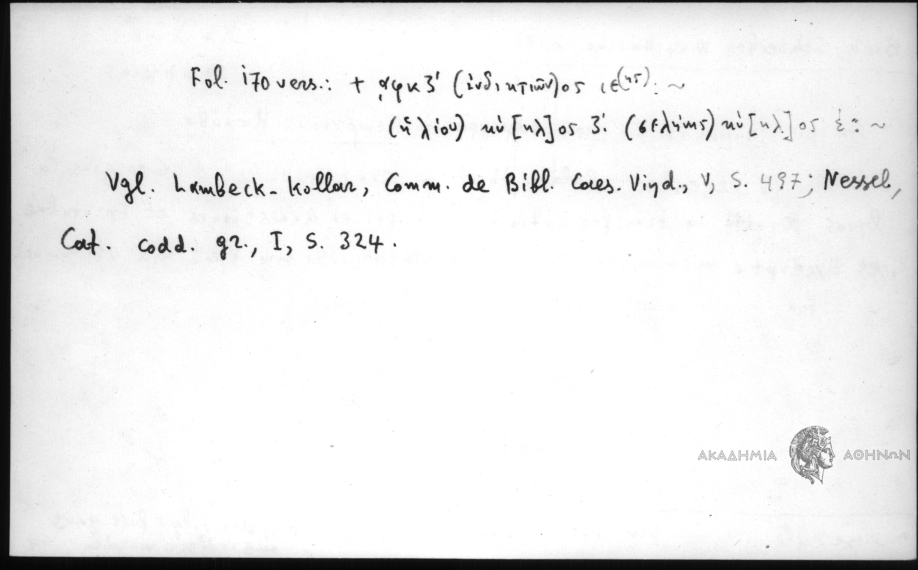 Fol. 170 vers.: + ͵αφκζʹ (ἰνδικτιῶν)ος ιε(ης). ~
(ἡλίου) κύ[κλ]ος ζ. (σελήνης) κύ[κλ]ος ἑ: ~
Vgl. Lambeck-Kollar, Comm. de Bibl. Caes. Vind., V, S. 497; Nessel,
Cat. codd. gr., I, S. 324.
ΑΚΑΔΗΜΙΑ ΑΘΗΝΩΝ